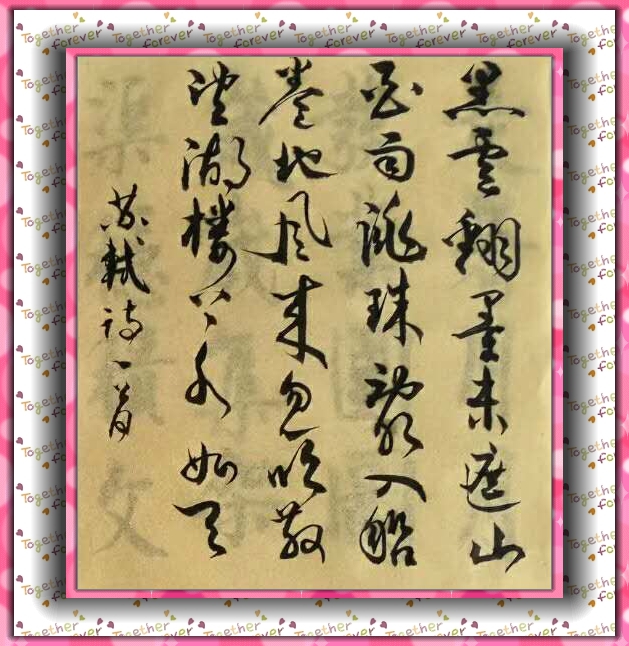 黑雲翻墨未遮山
白雨跳珠亂入船
卷地風來忽吹散
望湖樓下水如天
蘇軾詩一首
Together
forever